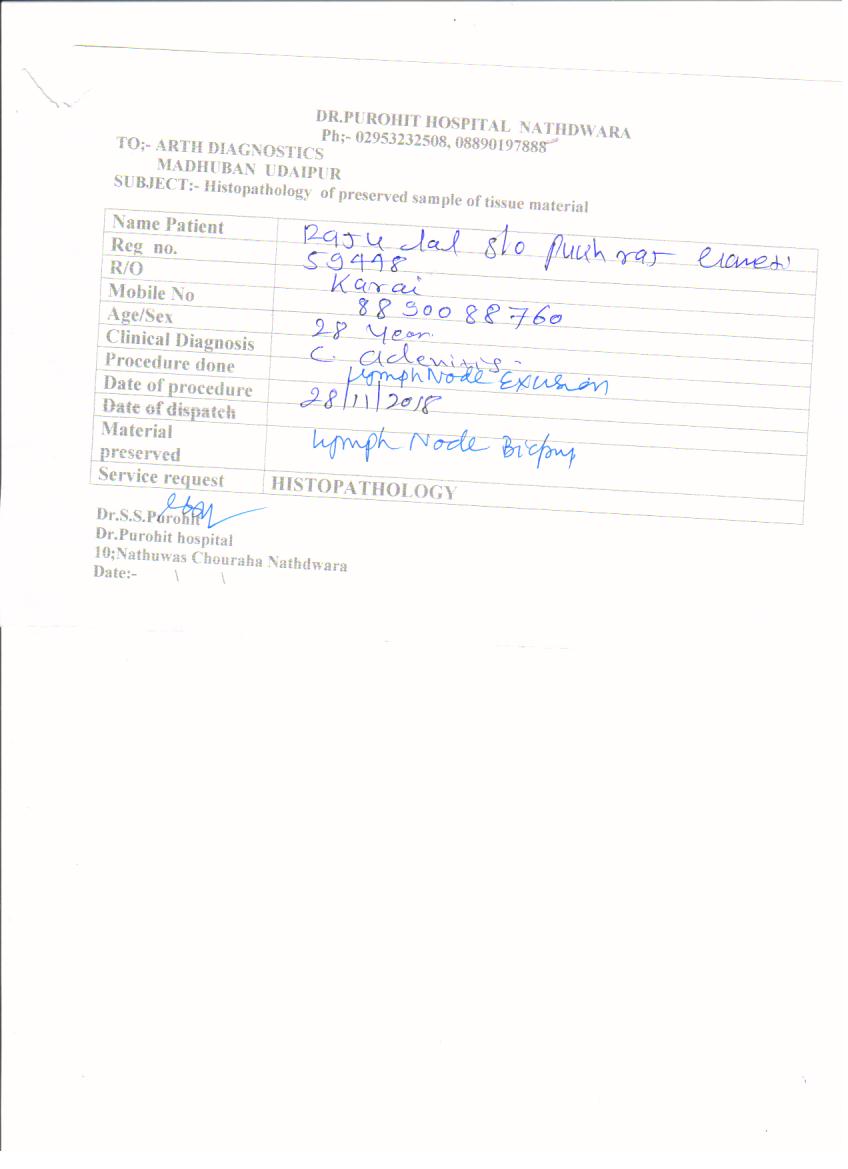 DR.PUROHIT HOSPITAL NATHDWARA
Ph;- 02953232508, 08890197888
TO;- ARTH DIAGNOSTICS
MADHUBAN UDAIPUR
SUBJECT:- Histopathology of preserved sample of tissue material
Name Patient Raju lal s/o
Reg no. 59448
R/O Karai
Mobile No 8890088760
Age/Sex 28 Year
Clinical Diagnosis C. adenitis -
Procedure done Lymph Node Excision
Date of procedure 28/11/2018
Date of dispatch
Material
preserved Lymph Node Biopsy
Service request HISTOPATHOLOGY
Dr.S.S.Purohit
Dr.Purohit hospital
10;Nathuwas Chouraha Nathdwara
Date:- \ \